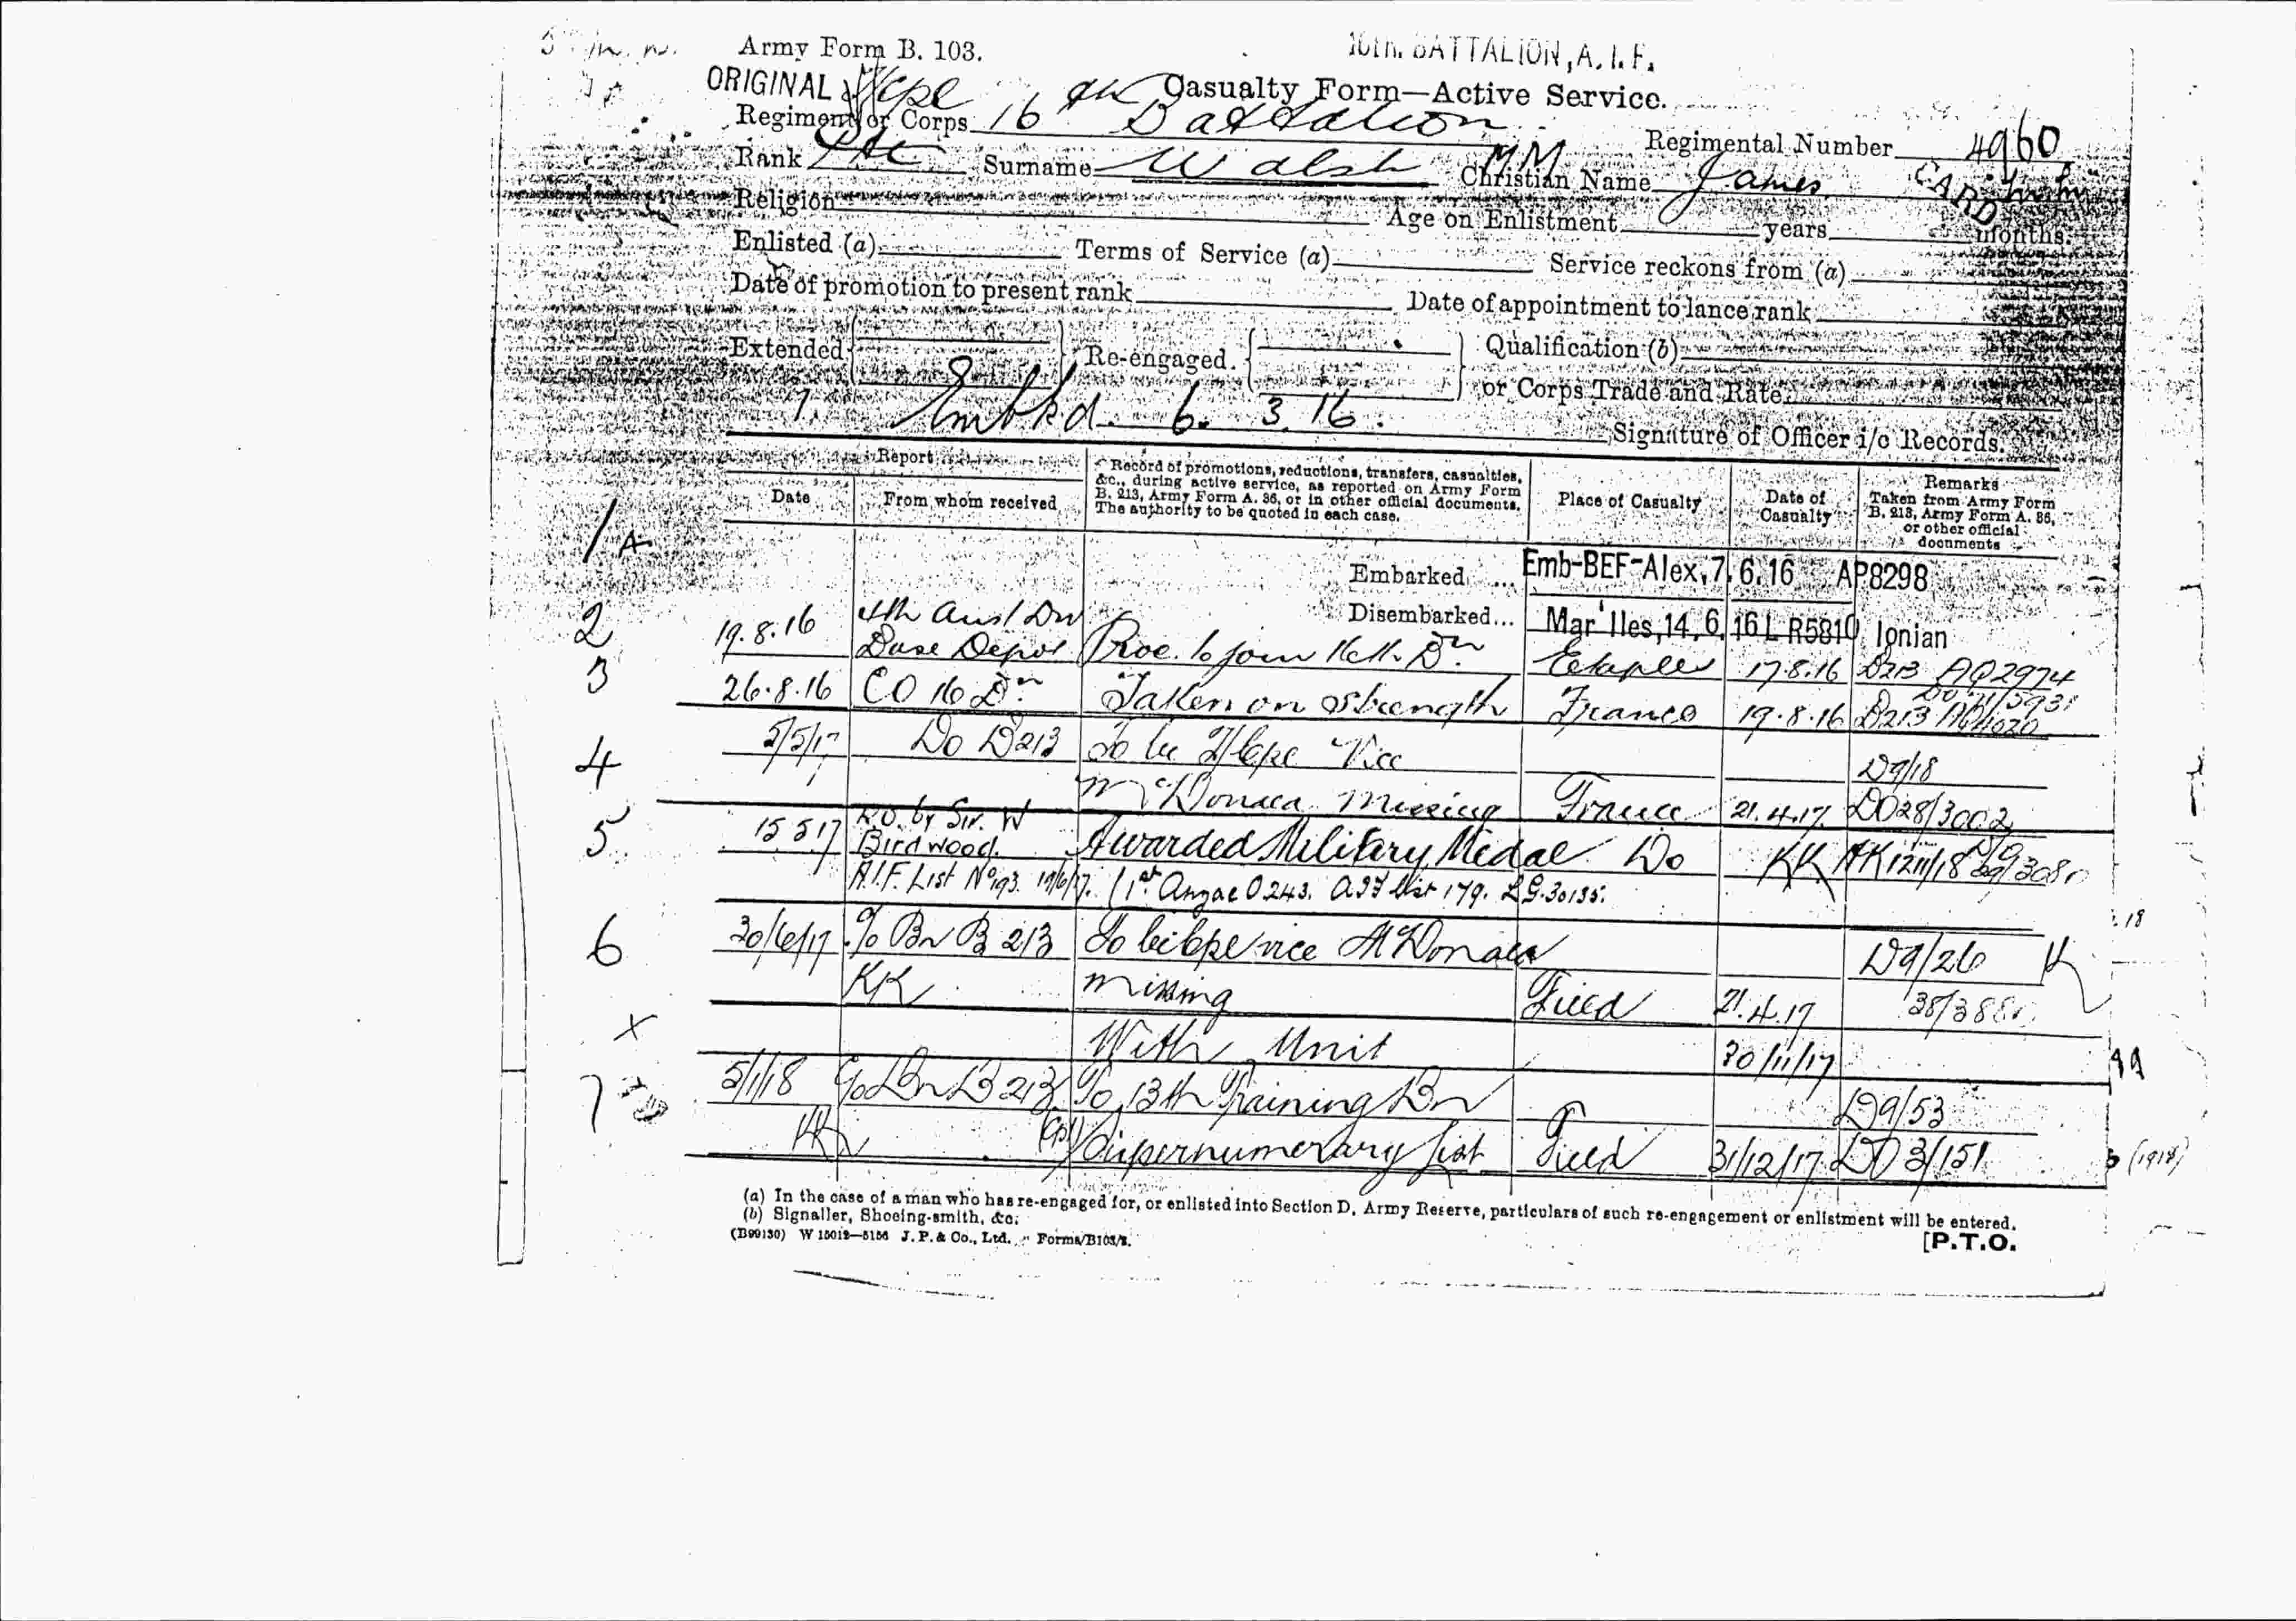 Army Form B. 103.
16th. BATTALION, A. I. F.
ORIGINAL
Casualty Form—Active Service.
Regiment or Corps 16th Battalion
Regimental Number 4960
Rank Pte Surname Walsh MM Christian Name James
CARD
Religion Age on Enlistment years months.
Enlisted (a) Terms of Service (a) Service reckons from (a)
Date of promotion to present rank Date of appointment to lance rank
Extended Re-engaged. Qualification (b)
or Corps Trade and Rate
Embkd. 6. 3. 16.
Signature of Officer i/c Records.
Report
Date
From whom received
Record of promotions, reductions, transfers, casualties, &c., during active service, as reported on Army Form B. 213, Army Form A. 36, or in other official documents. The authority to be quoted in each case.
Place of Casualty
Date of Casualty
Remarks
Taken from Army Form B. 213, Army Form A. 36, or other official documents
1A
Embarked ... Emb-BEF-Alex, 7.6.16 AP8298
Disembarked... Mar'lles, 14.6.16 L R5810 Ionian
2 19.8.16 4th Aust Dn Base Depot Proc. to join 16th Bn Etaples 17.8.16 B213 AQ2974
3 26.8.16 CO 16 Bn Taken on Strength France 19.8.16 B213
4 5/5/17 Do B213 To be Vice D9/18
McDonald Missing France 21.4.17. DO28/3002
5 15.5.17 R.O. by Sir. W Birdwood. Awarded Military Medal Do KK
A.I.F. List No 193. 19/6/17. (1st Anzac O 243. AIF List 179. LG.30135.
6 30/6/17 % Bn B 213 To be Cpl vice McDonald D9/26
KK missing Field 21.4.17
X With Unit 30/11/17
7 5/1/18 % Bn B 213 To 13th Training Bn D9/53
(Cpl) Supernumerary List Field 31/12/17 DO 3/151
(1918)
(a) In the case of a man who has re-engaged for, or enlisted into Section D, Army Reserve, particulars of such re-engagement or enlistment will be entered.
(b) Signaller, Shoeing-smith, &c.
(B99130) W 15012—5156 J. P. & Co., Ltd. Forms/B103/2.
[P.T.O.